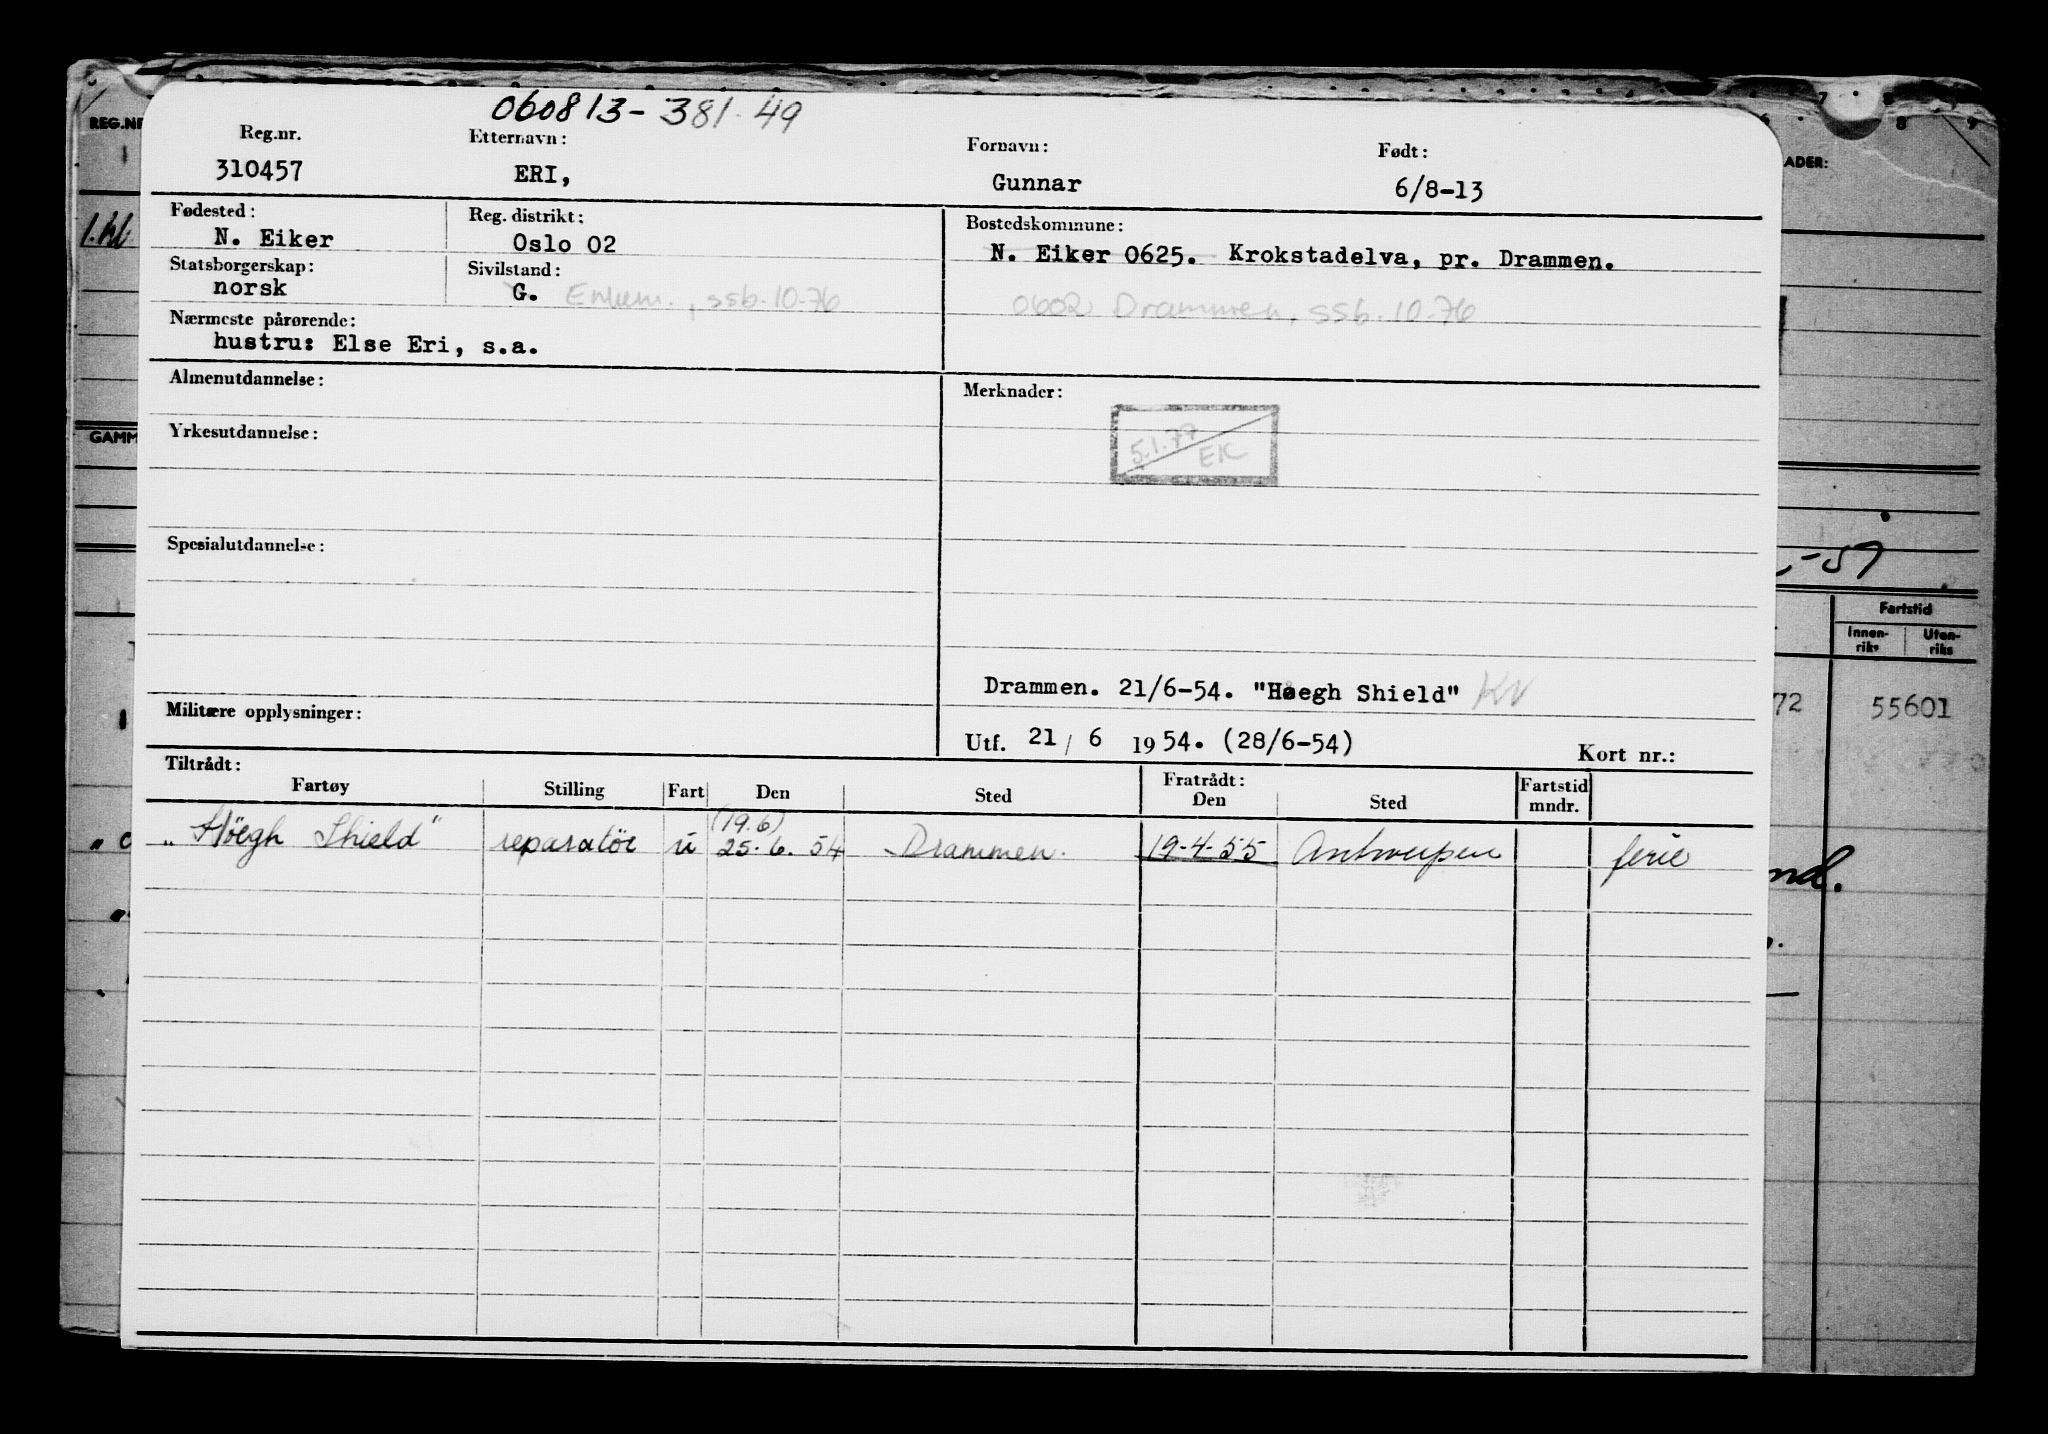 060813-381.49
Reg.nr. Etternavn: Fornavn: Født:
310457 ERI, Gunnar 6/8-13
Fødested: Reg. distrikt: Bostedskommune:
N. Eiker Oslo 02 N. Eiker 0625. Krokstadelva, pr. Drammen.
Statsborgerskap: Sivilstand:
norsk G. Enkem., ssb.10-76 0602 Drammen, ssb.10-76
Nærmeste pårørende:
hustru: Else Eri, s.a.
Almenutdannelse: Merknader:
Yrkesutdannelse: 5.1.77
EK
Spesialutdannelse:
Drammen. 21/6-54. "Høegh Shield" KV
Militære opplysninger:
Utf. 21 / 6 1954. (28/6-54) Kort nr.:
Tiltrådt: Fratrådt:
Fartøy Stilling Fart Den Sted Den Sted Fartstid mndr.
(19.6)
"Höegh Shield" reparatör u 25.6.54 Drammen. 19-4-55 Antwerpen ferie
REG.NR
1
1.kl
GAMM
ADER:
7 8
8 9
-57
Fartstid
Innen-riks Uten-riks
72 55601
nd.